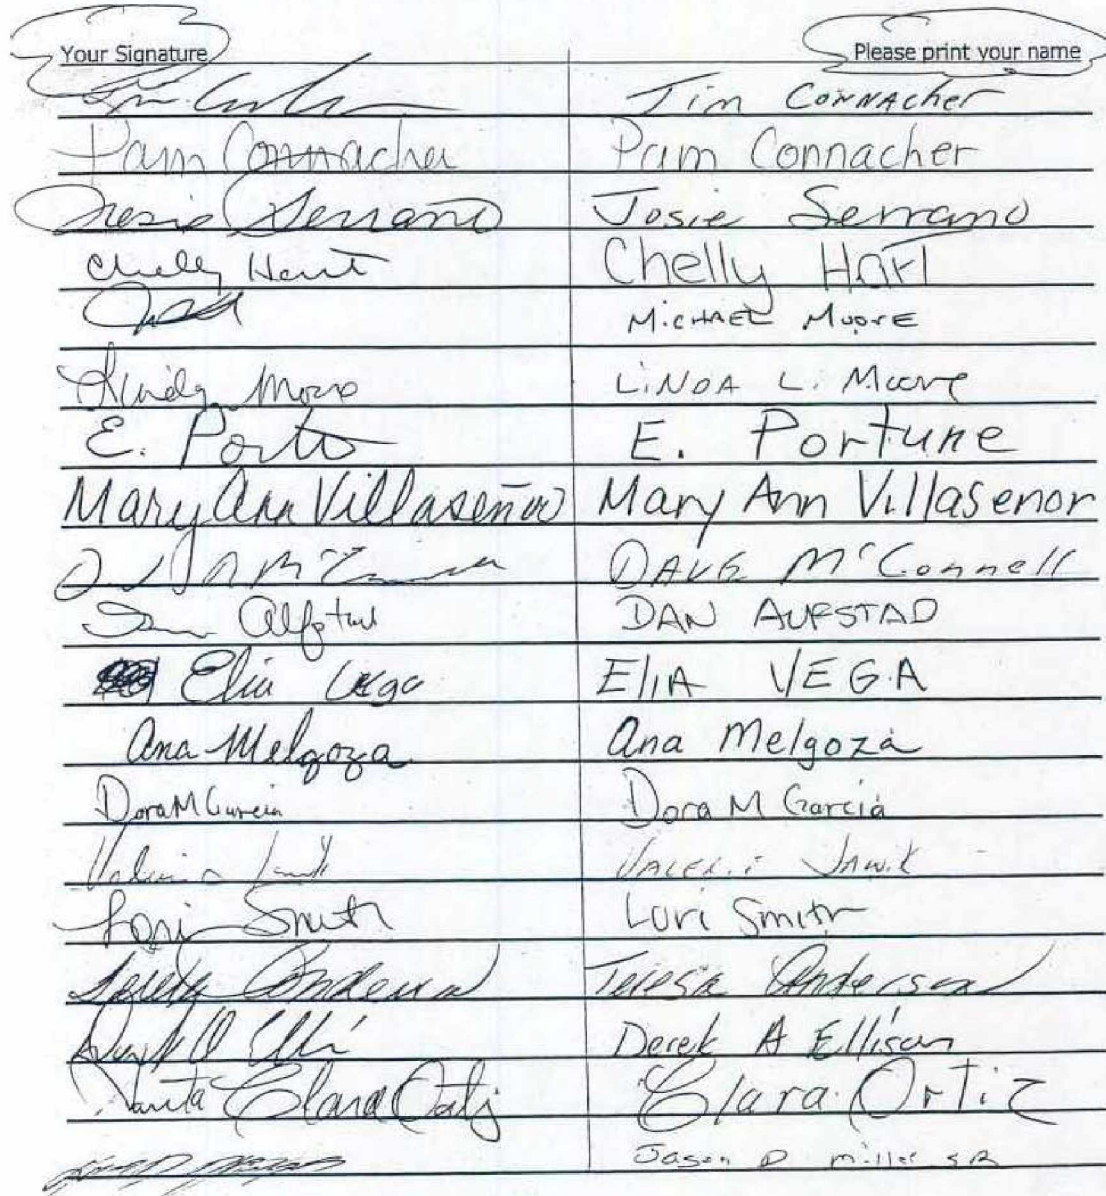 Your Signature Please print your name
Jim Connacher
Pam Connacher Pam Connacher
Josie Serrano Josie Serrano
Chelly Hart Chelly Hart
MICHAEL MOORE
Linda Moore LINDA L. Moore
E. Porto E. Portune
Mary Ann Villaseñor Mary Ann Villasenor
DAVE McConnell
Dan DAN AUFSTAD
Elia Vega EliA VEGA
Ana Melgoza Ana Melgoza
Dora M Garcia Dora M Garcia
Lori Smith Lori Smith
Teresa Anderson Teresa Anderson
Derek A Ellison
Clara Ortiz Clara Ortiz
Jason D miller SR